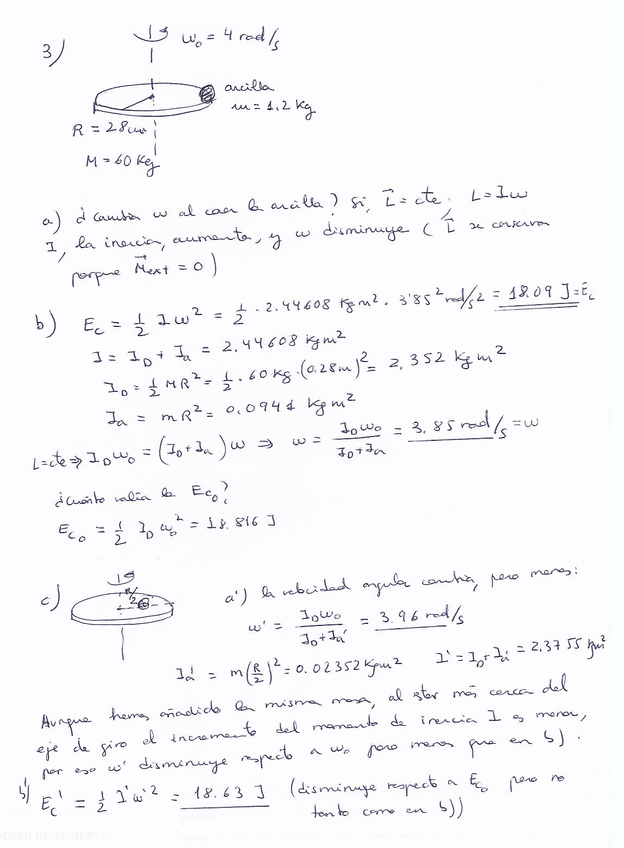 3)
ω₀ = 4 rad/s
arcilla
m = 1.2 Kg
R = 28cm
M = 60 Kg
a) ¿Cambia ω al caer la arcilla? Si, L⃗ = cte; L = Iω
I, la inercia, aumenta, y ω disminuye ( L⃗ se conserva
porque M⃗ext = 0 )
b) Ec = 1/2 I ω² = 1/2 · 2.44608 Kg m² · 3'85² rad/s² = 18.09 J = Ec
I = I_D + I_a = 2.44608 Kg m²
I_D = 1/2 MR² = 1/2 · 60 Kg · (0.28m)² = 2.352 Kg m²
I_a = mR² = 0.0941 Kg m²
L=cte ⇒ I_D ω₀ = (I_D + I_a) ω ⇒ ω = I_D ω₀ / (I_D + I_a) = 3.85 rad/s = ω
¿cuánto valía la Ec₀?
Ec₀ = 1/2 I_D ω₀² = 18.816 J
c)
R/2
a') la velocidad angular cambia, pero menos:
ω' = I_D ω₀ / (I_D + I_a') = 3.96 rad/s
I_a' = m(R/2)² = 0.02352 Kg m² I' = I_D + I_a' = 2.3755 Kg m²
Aunque hemos añadido la misma masa, al estar más cerca del
eje de giro el incremento del momento de inercia I es menor,
por eso ω' disminuye respecto a ω₀ pero menos que en b).
b') Ec' = 1/2 I' ω'² = 18.63 J (disminuye respecto a Ec₀ pero no
tanto como en b))